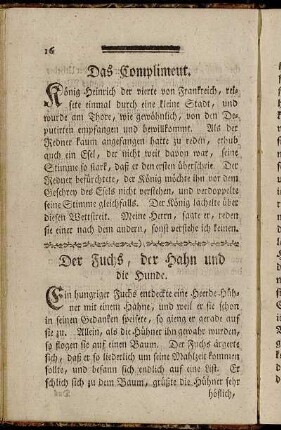 16
Das Compliment.
König Heinrich der vierte von Frankreich, rei-
sete einmal durch eine kleine Stadt, und
wurde am Thore, wie gewöhnlich, von den De-
putirten empfangen und bewillkommt. Als der
Redner kaum angefangen hatte zu reden, erhub
auch ein Esel, der nicht weit davon war, seine
Stimme so stark, daß er den ersten überschrie. Der
Redner befürchtete, der König möchte ihn vor dem
Geschrey des Esels nicht verstehen, und verdoppelte
seine Stimme gleichfalls. Der König lächelte über
diesen Wettstreit. Meine Herrn, sagte er, reden
sie einer nach dem andern, sonst verstehe ich keinen.
Der Fuchs, der Hahn und
die Hunde.
Ein hungriger Fuchs entdeckte eine Heerde Hüh-
ner mit einem Hahne, und weil er sie schon
in seinen Gedanken speiste, so gieng er gerade auf
sie zu. Allein, als die Hühner ihn gewahr wurden,
so flogen sie auf einen Baum. Der Fuchs ärgerte
sich, daß er so liederlich um seine Mahlzeit kommen
sollte, und besann sich endlich auf eine List. Er
schlich sich zu dem Baum, grüßte die Hühner sehr
höflich,